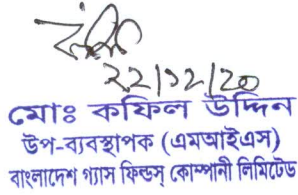 ২২/১২/২০
মোঃ কফিল উদ্দিন
উপ-ব্যবস্থাপক (এমআইএস)
বাংলাদেশ গ্যাস ফিল্ডস্ কোম্পানী লিমিটেড